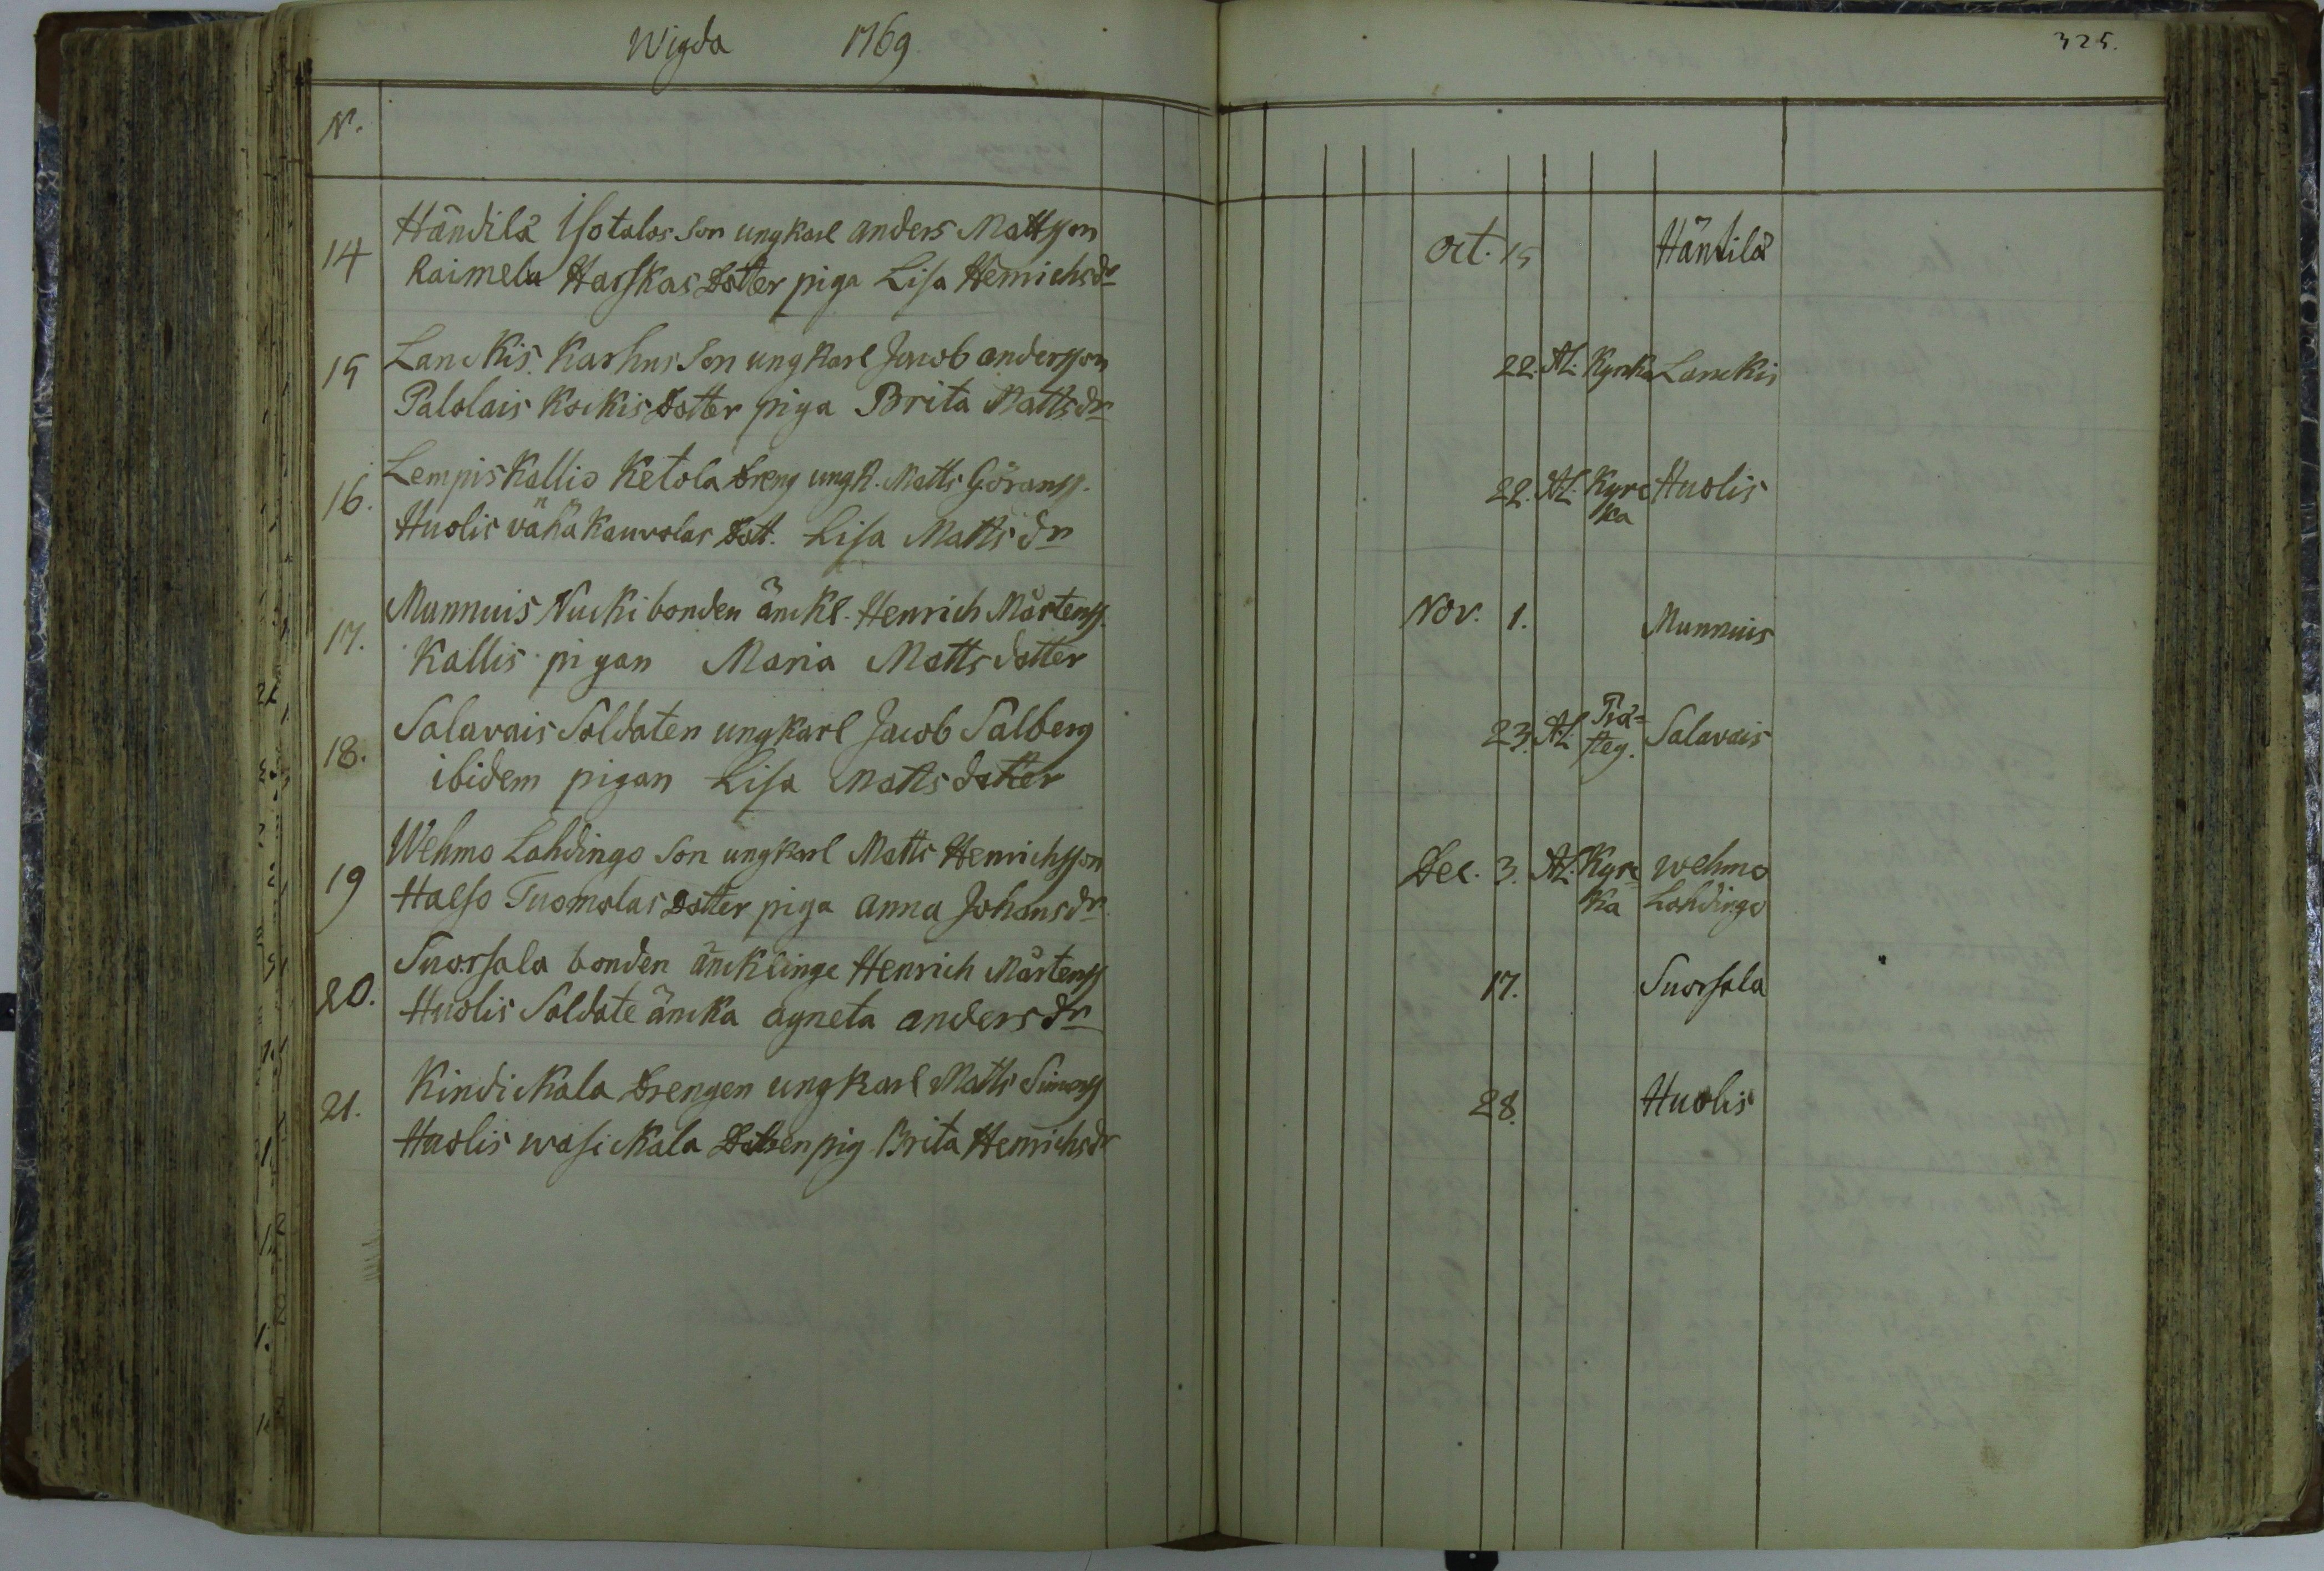 Wigda 1769
325.
N.
14 Händilä Isotalos Son ungkarl anders Mattsson
Raimela Harskas Dotter piga Lisa Henrichsdr
Oct. 15 Häntilä
15 Lanckis Karhus Son ungkarl Jacob andersson
Palolais Kockis Dotter piga Brita Mattsdr
22. Kyrka Lanckis
16. Lempis Kallio Ketola Dreng ungk. Matts Göranss.
Huolis vähä Kauvolas Dott. Lisa Matts dr
22. Kyrc Huolis
ka
17. Munnuis Nucki bonden änckl. Henrich Mårtenss.
Kallis pigan Maria Matts dotter
Nov. 1. Munnuis
18. Salavais Soldaten ungkarl Jacob Salberg
ibidem pigan Lisa Matts dotter
Prä=
23. steg. Salavais
19 Wehmo Lahdingo Son ungkarl Matts Henrichsson
Halso Tuomolas Dotter piga anna Johansdr
Dec. 3. Kyrc= wehmo
ka Lahdingo
20. Suorsala bonden äncklinge Henrich Mårtenss
Huolis Soldate äncka agneta anders dr
17. Suorsala
21. Kindickala Drengen ungkarl Matts Simonss
Huolis wasickala Dottren pig Brita Henrichsdr
28. Huolis